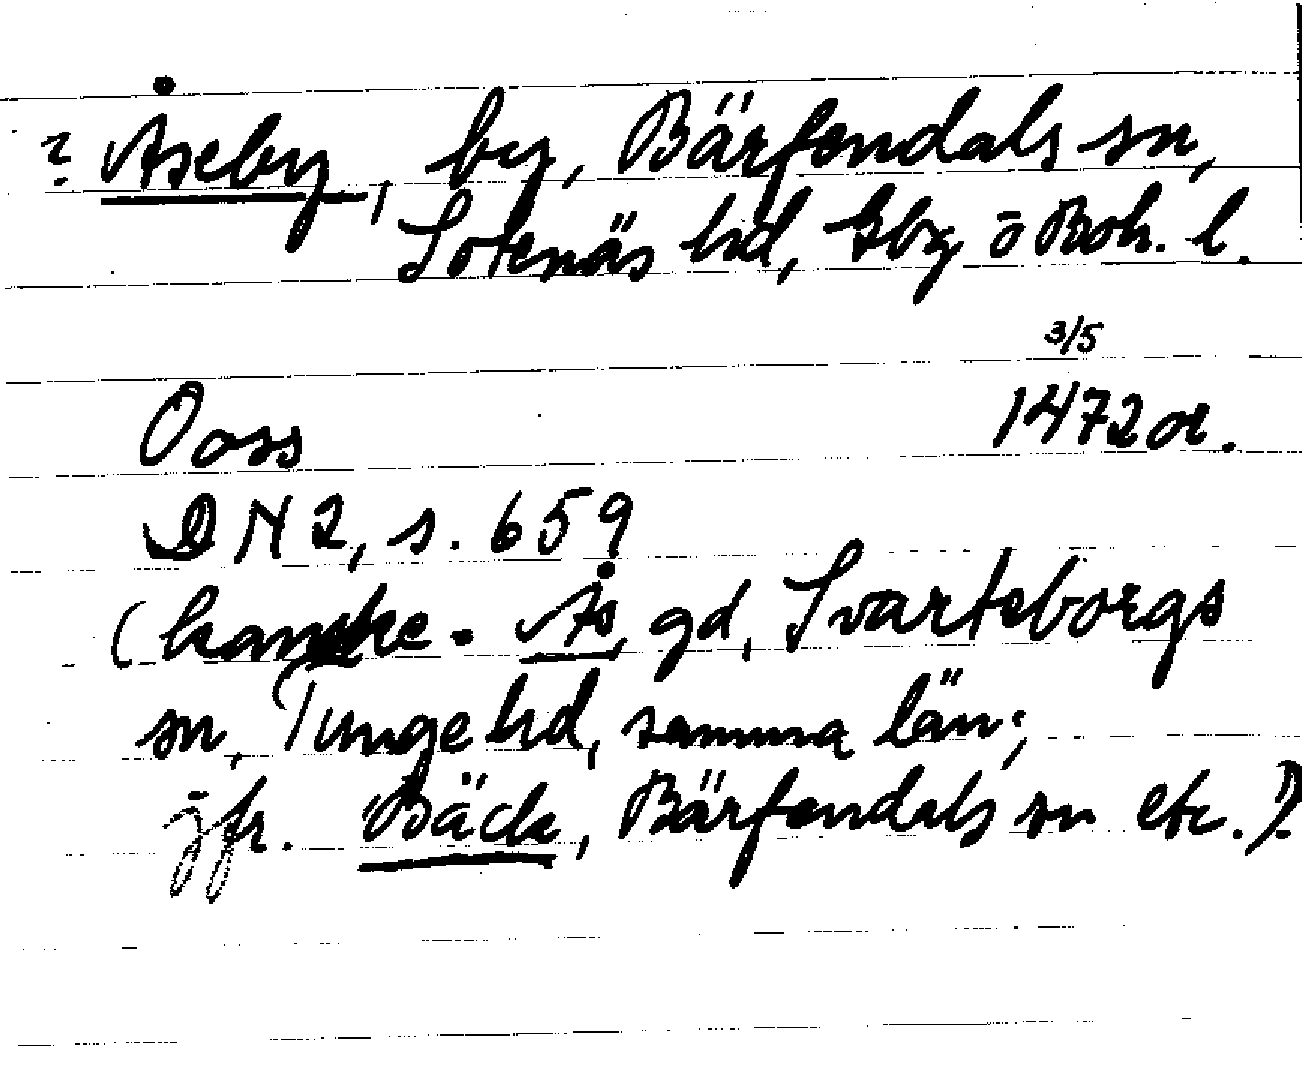 ? Åseby, by, Bärfendals sn,
Sotenäs hd, Gbg o Boh. l.
3/5
Ooss 1472 or.
DN 2, s. 659
(kanske. Ås, gd, Svarteborgs
sn, Tunge hd, samma län;
jfr. Bäck, Bärfendals sn etc.).